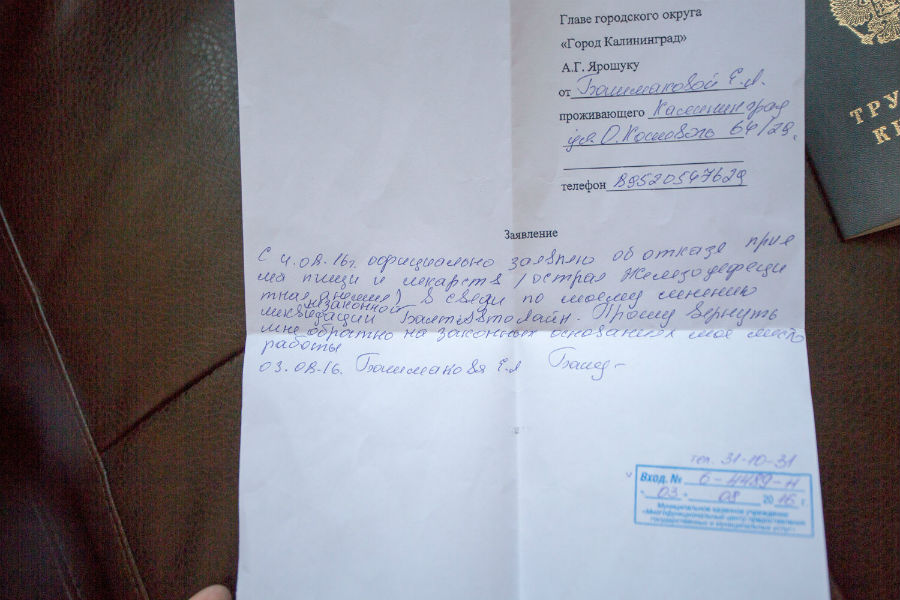 Главе городского округа
«Город Калининград»
А.Г. Ярошуку
от Башмаковой Е.А.
проживающего Калининград
ул. О. Кошевого 64/29,
телефон 89520547629
Заявление
С 4.08.16г. официально заявляю об отказе прие
ма пищи и лекарств /острая Железодефеци
тная анемия) в связи по моему мнению
незаконной
ликвидации БалтАвтоЛайн. Прошу вернуть
мне обратно на законных основаниях мое место
работы
03.08-16. Башмакова Е.А
тел. 31-10-31
Вход. № 6-4489-н
" 03 " 08 20 16 г.
Муниципальное казенное учреждение
«Многофункциональный центр предоставления
государственных и муниципальных услуг»
ТРУ
К